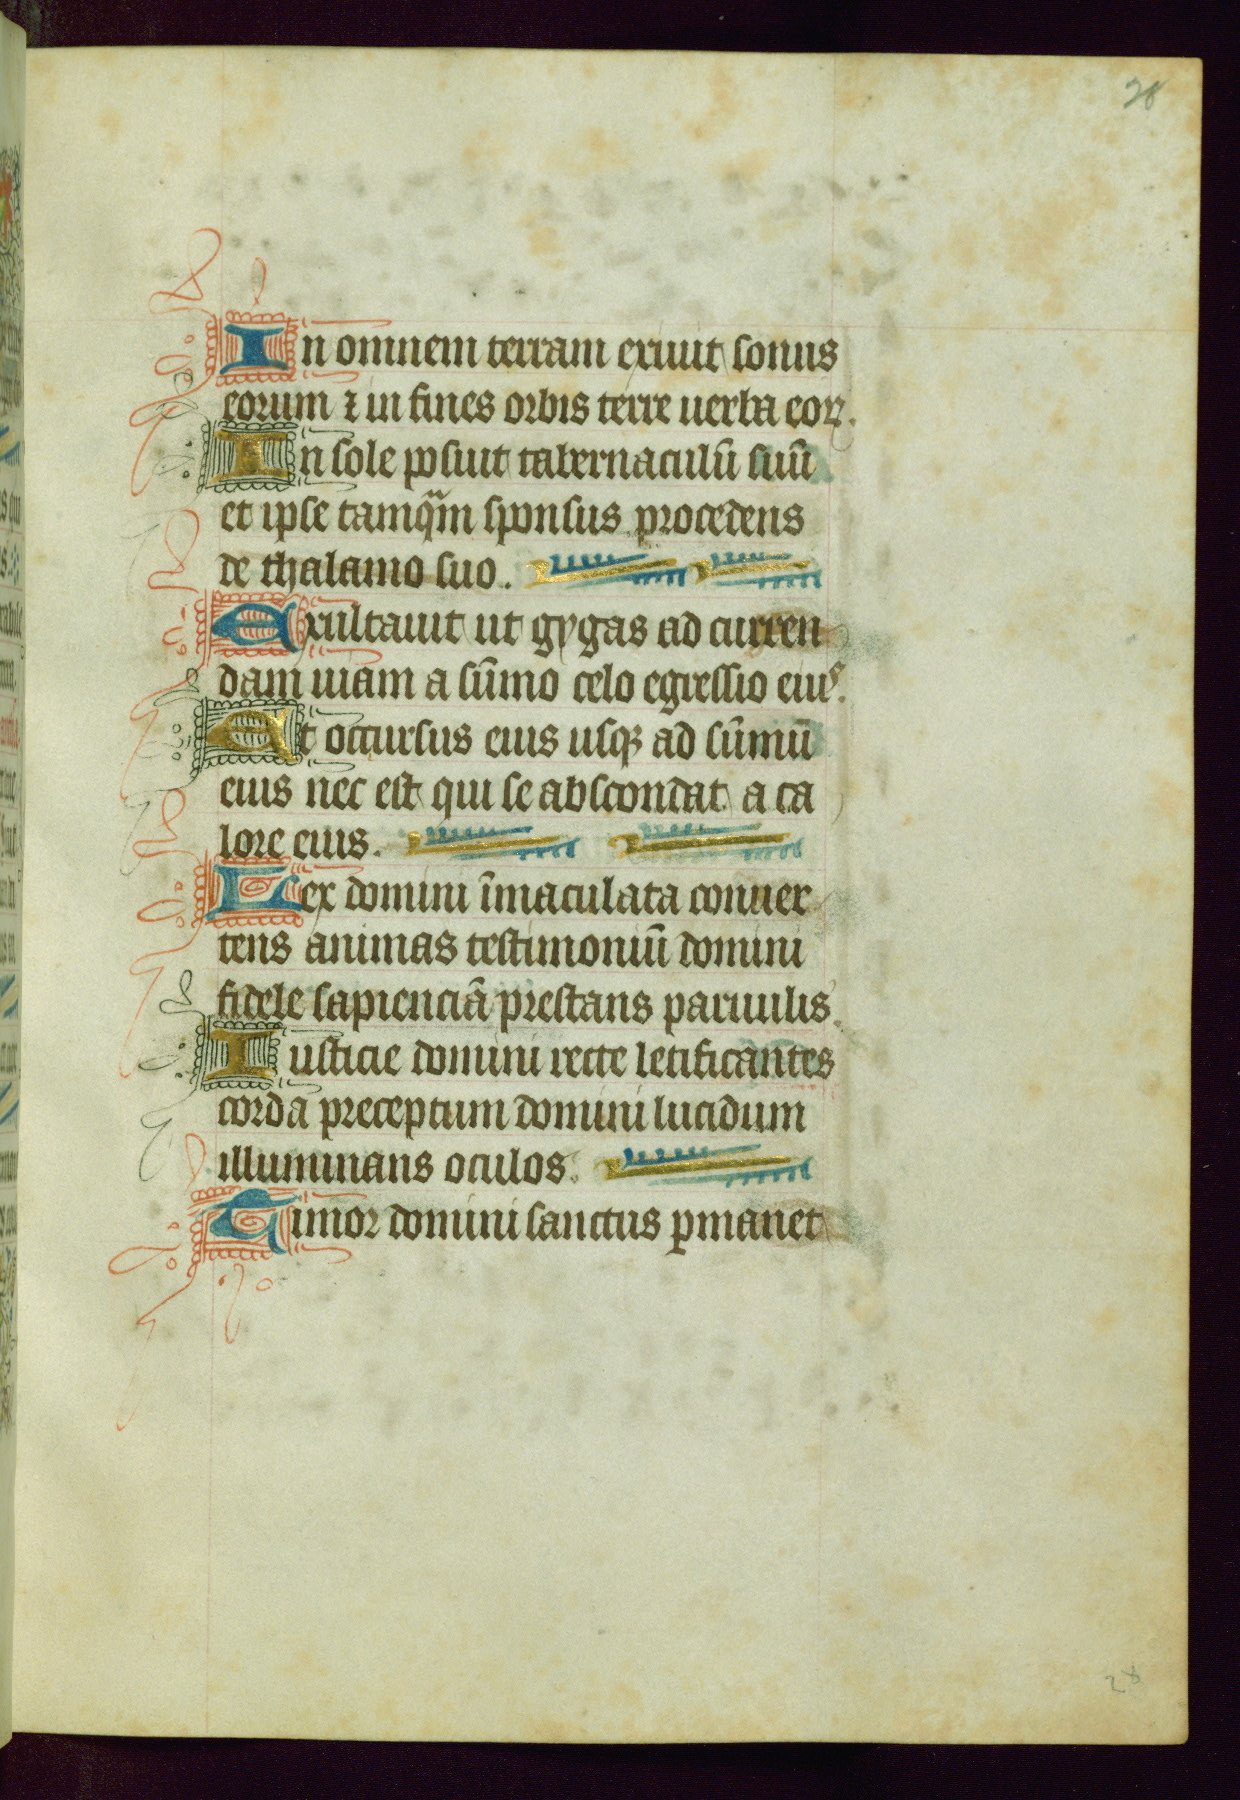 28
In omnem terram exiuit sonus
eorum ⁊ in fines orbis terre uerba eoꝝ.
In sole posuit tabernaculū suū
et ipse tamqᷓm sponsus procedens
de thalamo suo.
Exultauit ut gygas ad curren
dam uiam a sūmo celo egressio eiuꝰ.
Et occursus eius usqꝫ ad sūmū
eius nec est qui se abscondat a ca
lore eius.
Lex domini īmaculata conuer
tens animas testimoniū domini
fidele sapienciā prestans paruulis.
Iusticie domini recte letificantes
corda preceptum domini lucidum
illuminans oculos.
Timor domini sanctus ꝑmanet
28